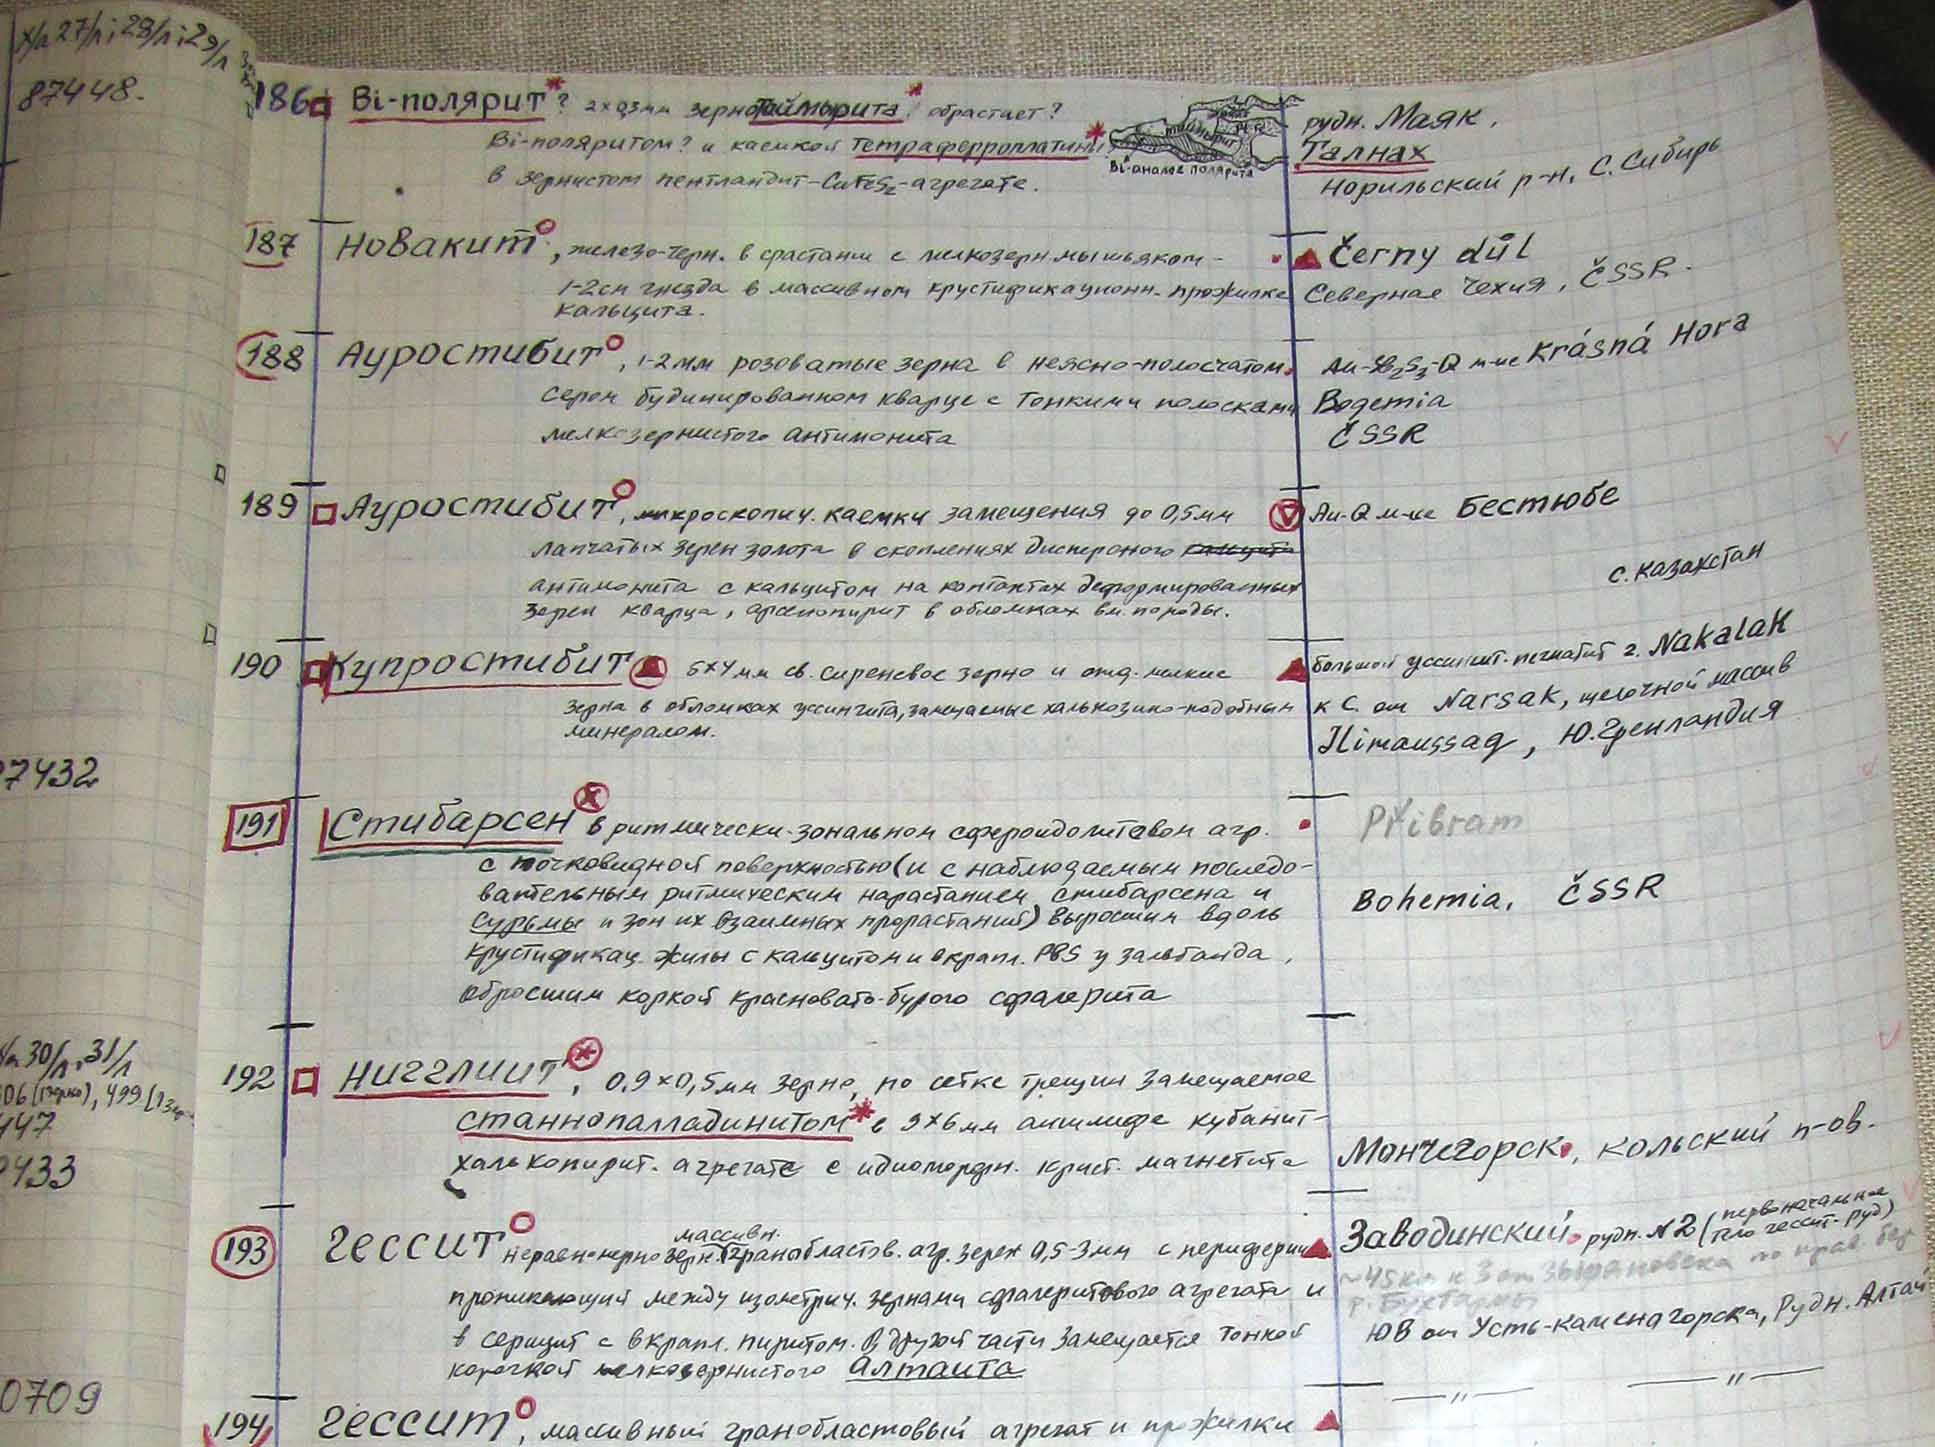 Х/а 27/л; 28/л; 29/л
87448.
186 Bi-полярит? 2х0,3мм зерно таймырита обрастает?
Bi-поляритом? и каемкой тетраферроплатины
в зернистом пентландит-CuFeS2-агрегате.
таймырит
Bi-аналог полярита
рудн. Маяк,
Талнах
Норильский р-н, С. Сибирь
187 Новакит, железо-черн. в срастании с мелкозерн мышьяком-
1-2см гнезда в массивном крустификационн. прожилке
кальцита.
Černy důl
Северная Чехия, ČSSR.
188 Ауростибит, 1-2мм розоватые зерна в неясно-полосчатом
сером будинированном кварце с тонкими полосками
мелкозернистого антимонита
Au-Sb2S3-Q м-ие Krásná Hora
Bogemia
ČSSR
189 Ауростибит, микроскопич. каемки замещения до 0,5мм
лапчатых зерен золота в скоплениях дисперсного
антимонита с кальцитом на контактах деформированных
зерен кварца, арсенопирит в обломках вм. породы.
Au-Q м-ие Бестюбе
с. Казахстан
190 Купростибит 5х4мм св. сиреневое зерно и отд. мелкие
зерна в обломках уссингита, замещаемые халькозино-подобным
минералом.
большой уссингит-пегматит г. Nakalak
к С. от Narsak, щелочной массив
Ilimaussaq, Ю. Гренландия
7432
191 Стибарсен в ритмически-зональном сфероидолитовом агр.
с почковидной поверхностью (и с наблюдаемым последо-
вательным ритмическим нарастанием стибарсена и
сурьмы и зон их взаимных прорастаний) выросшим вдоль
крустификац. жилы с кальцитом и вкрапл. PbS у зальбанда,
обросшим коркой красновато-бурого сфалерита
Příbram
Bohemia, ČSSR
30/л, 31/л
06 (1 зерно), 499
447
433
192 Нигглиит, 0,9х0,5мм зерно, по сетке трещин замещаемое
станнопалладинитом в 9х6мм аншлифе кубанит-
халькопирит. агрегате с идиоморфн. крист. магнетита
Мончегорск, Кольский п-ов.
массивн.
193 Гессит неравномерно зерн. гранобластов. агр. зерен 0,5-3мм с периферии
проникающий между изометрич. зернами сфалеритового агрегата и
в серицит с вкрапл. пиритом. В другой части замещается тонкой
корочкой мелкозернистого алтаита
Заводинский рудн. №2 (первоначальное
тело гессит. руд)
~45км к З от Зыряновска по прав. бер
р. Бухтармы
ЮВ от Усть-Каменогорска, Рудн. Алтай
0709
194 Гессит, массивный гранобластовый агрегат и прожилки
—"— —"—